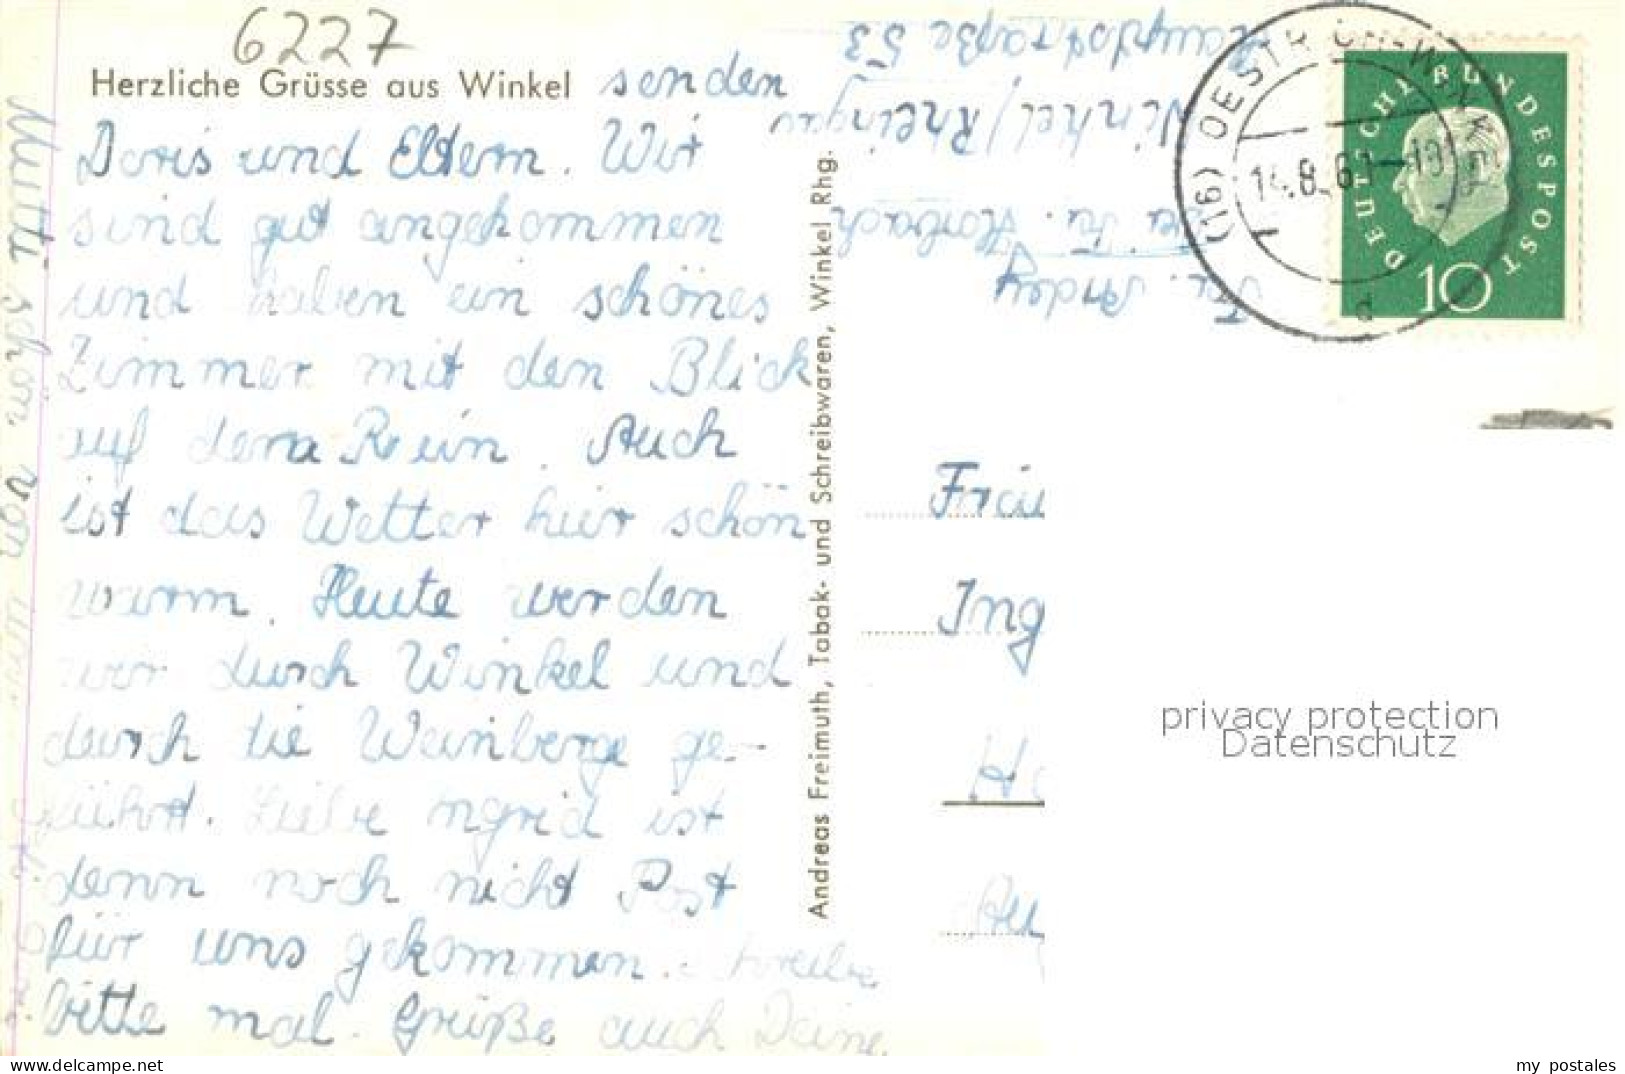 6227
Herzliche Grüsse aus Winkel senden
Doris und Eltern. Wir
sind gut angekommen
und haben ein schönes
Zimmer mit den Blick
auf dem Rein. Auch
ist das Wetter hier schön
warm. Heute werden
wir durch Winkel und
durch die Weinberge ge-
führt. Liebe Ingrid ist
denn noch nicht Post
für uns gekommen. schreibe
bitte mal. Grüße auch Deine
Mutti schon von uns
Andreas Freimuth, Tabak- und Schreibwaren, Winkel Rhg.
Fr. Andey
bei Fr. Korbach
Winkel/Rheingau
Hauptstraße 53
(16) OESTRICH-WINKEL
14.8.60-18
d
DEUTSCHE BUNDESPOST
10
Fräu
Ing
Ha
Au
privacy protection
Datenschutz
delcampe.net
my postales